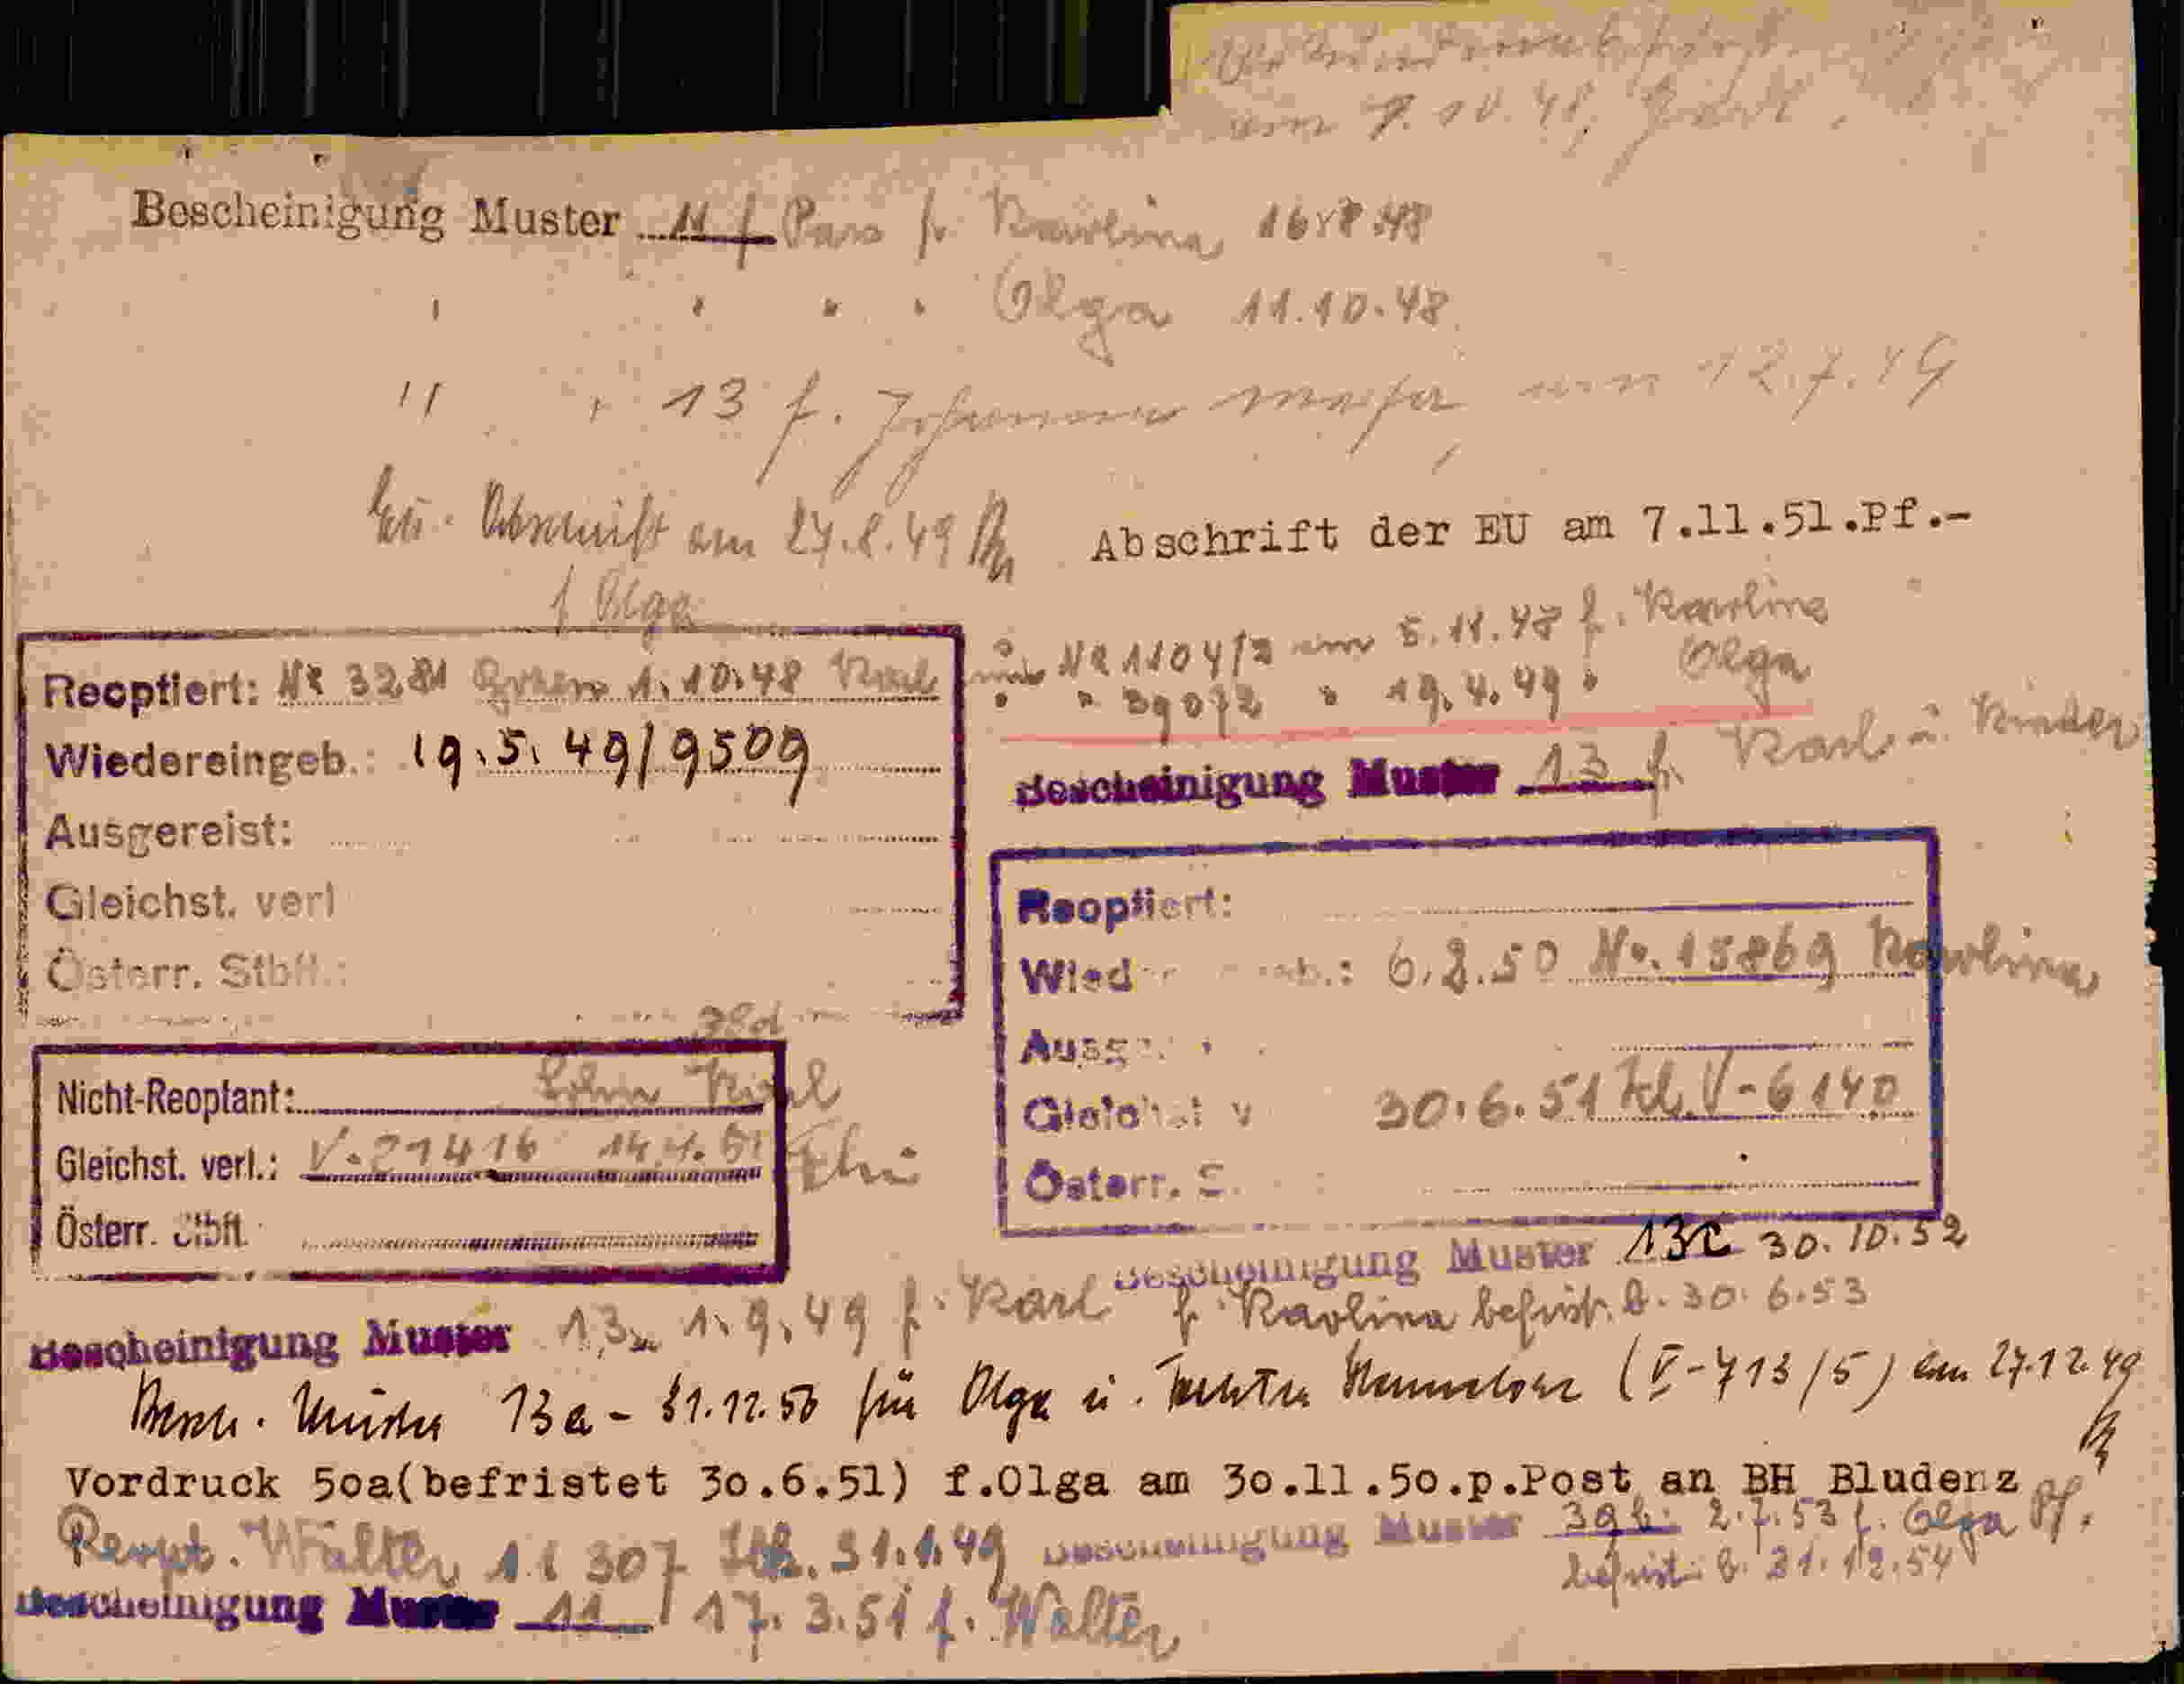 am 7.10.48, Karl
Bescheinigung Muster 11 f Pass f. Karolina 16.8.48
" " " " Olga 11.10.48
" " 13 f. am 12.7.49
EU. Abschrift am 27.8.49
Abschrift der EU am 7.11.51.Pf.-
f Olga
Reoptiert: Nr 3281 Bozen 1.10.48 Karl
Nr 1104/2 am 5.11.48 f. Karolina
" " 39072 " 19.4.49 " Olga
Wiedereingeb.: 19.5.49/9509
Ausgereist:
Gleichst. verl
Österr. Stbft.:
Bescheinigung Muster 13 f. Karl u. Kinder
Reoptiert:
Wied b.: 6.2.50 No. 15869 Karolina
Ausg
Gleichst v 30.6.51 Zl. V-6140
Österr. S.
Nicht-Reoptant: Sohn Karl
Gleichst. verl.: V-21416 14.4.51
Österr. Stbft.
Bescheinigung Muster 13c 30.10.52
f. Karolina befrist. b. 30.6.53
Bescheinigung Muster 13 1.9.49 f. Karl
Besch. Muster 13a - 31.12.50 für Olga u. Tochter (V-713/5) am 27.12.49
Vordruck 5oa(befristet 3o.6.51) f.Olga am 3o.11.5o.p.Post an BH Bludenz
Reopt. Walter 307 31.1.49
Bescheinigung Muster 39b. 2.7.53 f. Olga Pf.
befrist. b. 31.12.54
Bescheinigung Muster 11 17.3.51 f. Walter